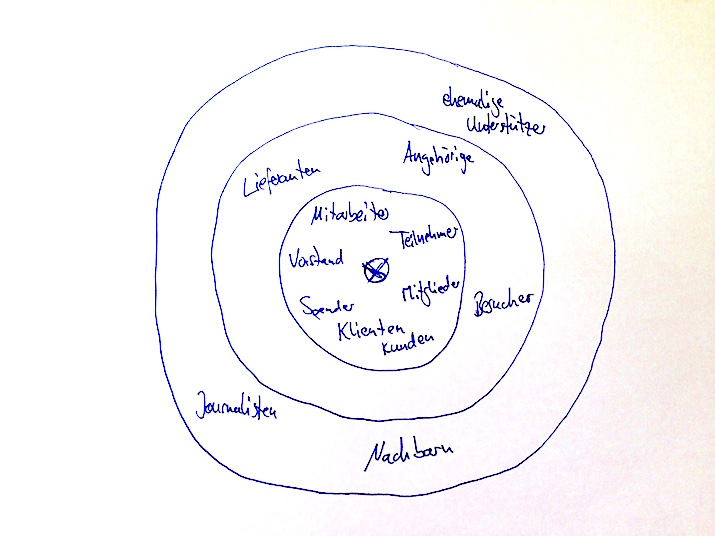 ehemalige
Unterstützer
Angehörige
Lieferanten
Mitarbeiter
Teilnehmer
Vorstand
Mitglieder
Spender
Besucher
Klienten
Kunden
Journalisten
Nachbarn